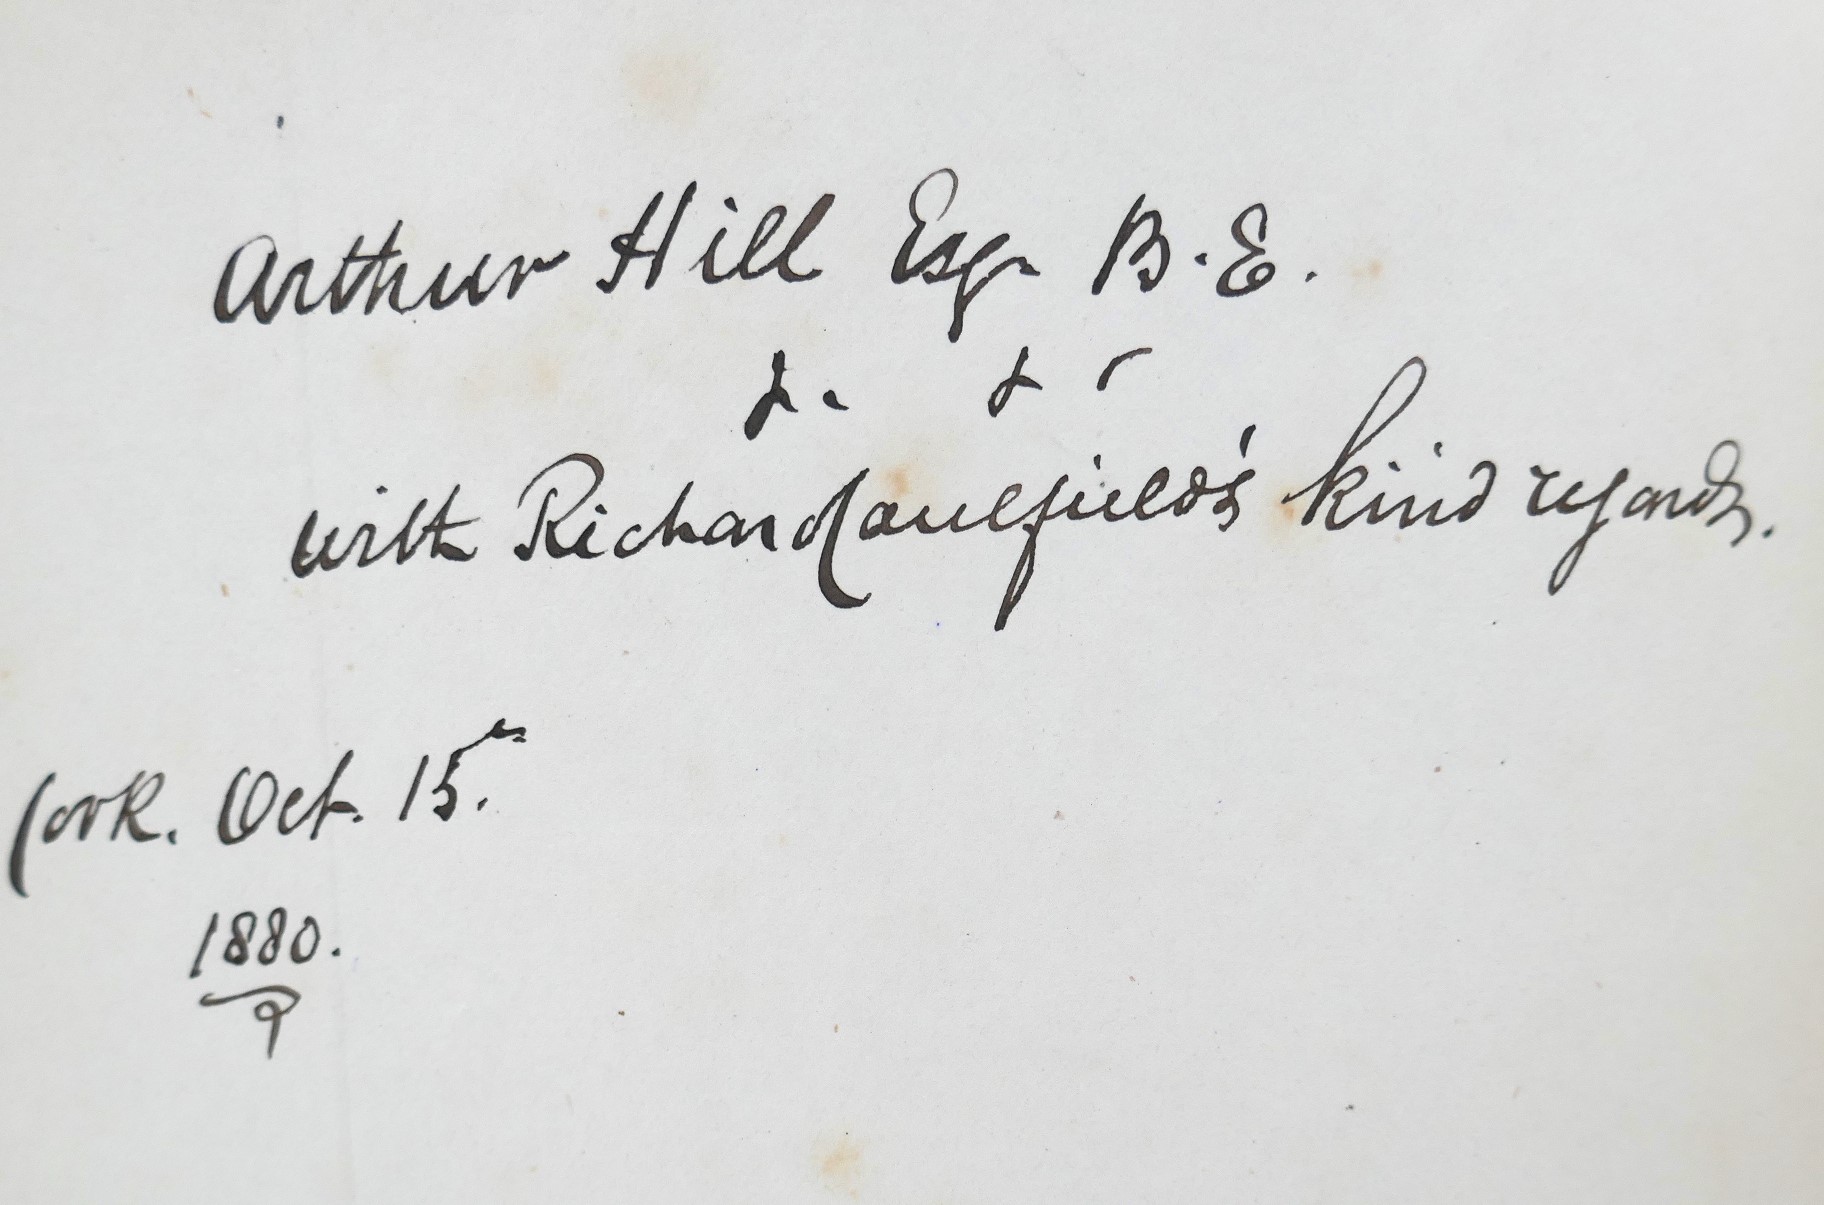 Arthur Hill Esq. B.E.
&. &c
with Richard Caulfield's kind regards.
Cork. Oct. 15th.
1880.